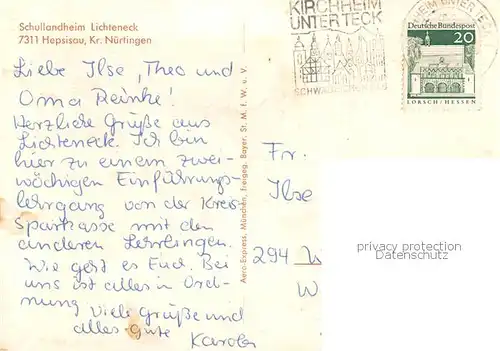 Schullandheim Lichteneck
7311 Hepsisau, Kr. Nürtingen
Liebe Ilse, Theo und
Oma Reinke!
Herzliche Grüße aus
Lichteneck. Ich bin
hier zu einem zwei-
wöchigen Einführungs-
lehrgang von der Kreis-
sparkasse mit den
anderen Lehrlingen.
Wie geht es Euch. Bei
uns ist alles in Ord-
nung
Viele Grüße und
alles Gute
Karola
Aero-Express, München, Freigeg. Bayer. St. M. f. W. u. V.
KIRCHHEIM
UNTER TECK
Deutsche Bundespost
20
LORSCH / HESSEN
Fr.
Ilse
294 W
W
privacy protection
Datenschutz